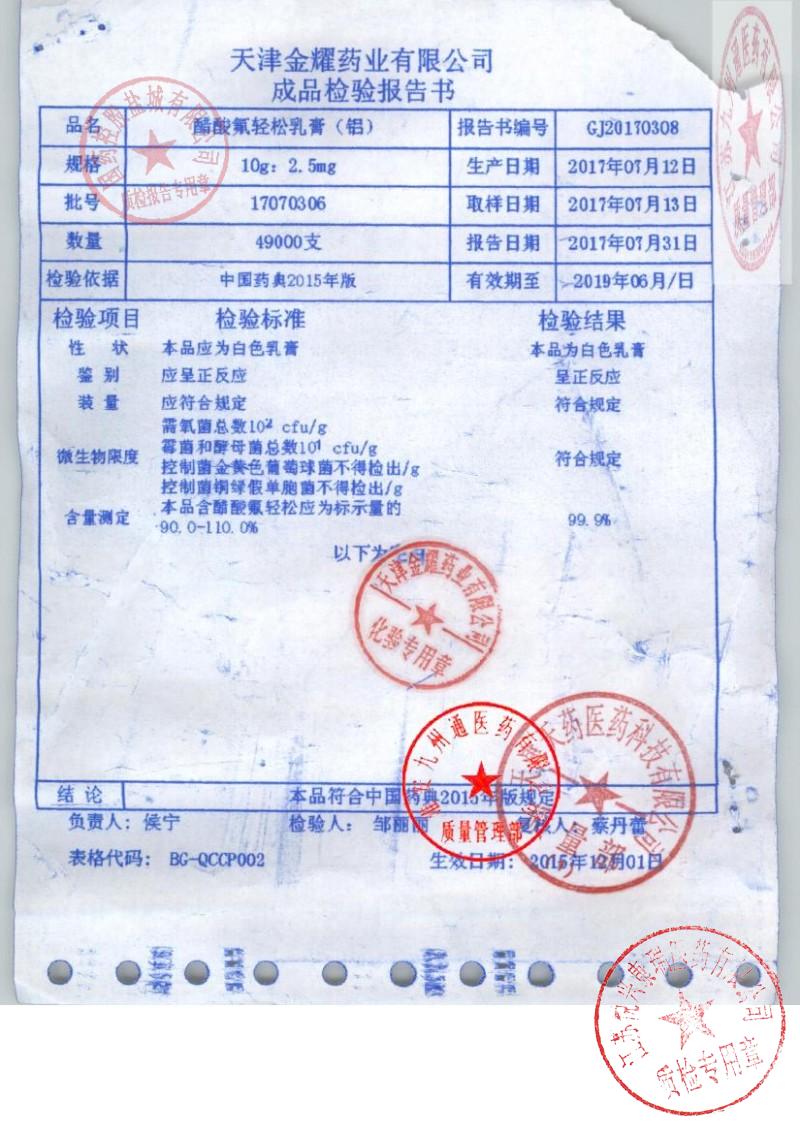 天津金耀药业有限公司
成品检验报告书
品名 醋酸氟轻松乳膏（铝） 报告书编号 GJ20170308
规格 10g：2.5mg 生产日期 2017年07月12日
批号 17070306 取样日期 2017年07月13日
数量 49000支 报告日期 2017年07月31日
检验依据 中国药典2015年版 有效期至 2019年06月/日
检验项目 检验标准 检验结果
性 状 本品应为白色乳膏 本品为白色乳膏
鉴 别 应呈正反应 呈正反应
装 量 应符合规定 符合规定
需氧菌总数10² cfu/g
霉菌和酵母菌总数10¹ cfu/g
微生物限度 符合规定
控制菌金黄色葡萄球菌不得检出/g
控制菌铜绿假单胞菌不得检出/g
含量测定 本品含醋酸氟轻松应为标示量的
90.0-110.0% 99.9%
以下为
天津金耀药业有限公司
化验专用章
结 论 本品符合中国药典2015年版规定
负责人：侯宁 检验人：邹丽丽 复核人 蔡丹蕾
表格代码：BG-QCCP002 生效日期：2015年12月01日
国药控股盐城有限公司
质检报告专用章
九州通医药有限
质量管理部
天药医药科技有限公司
质管理部
质检专用章